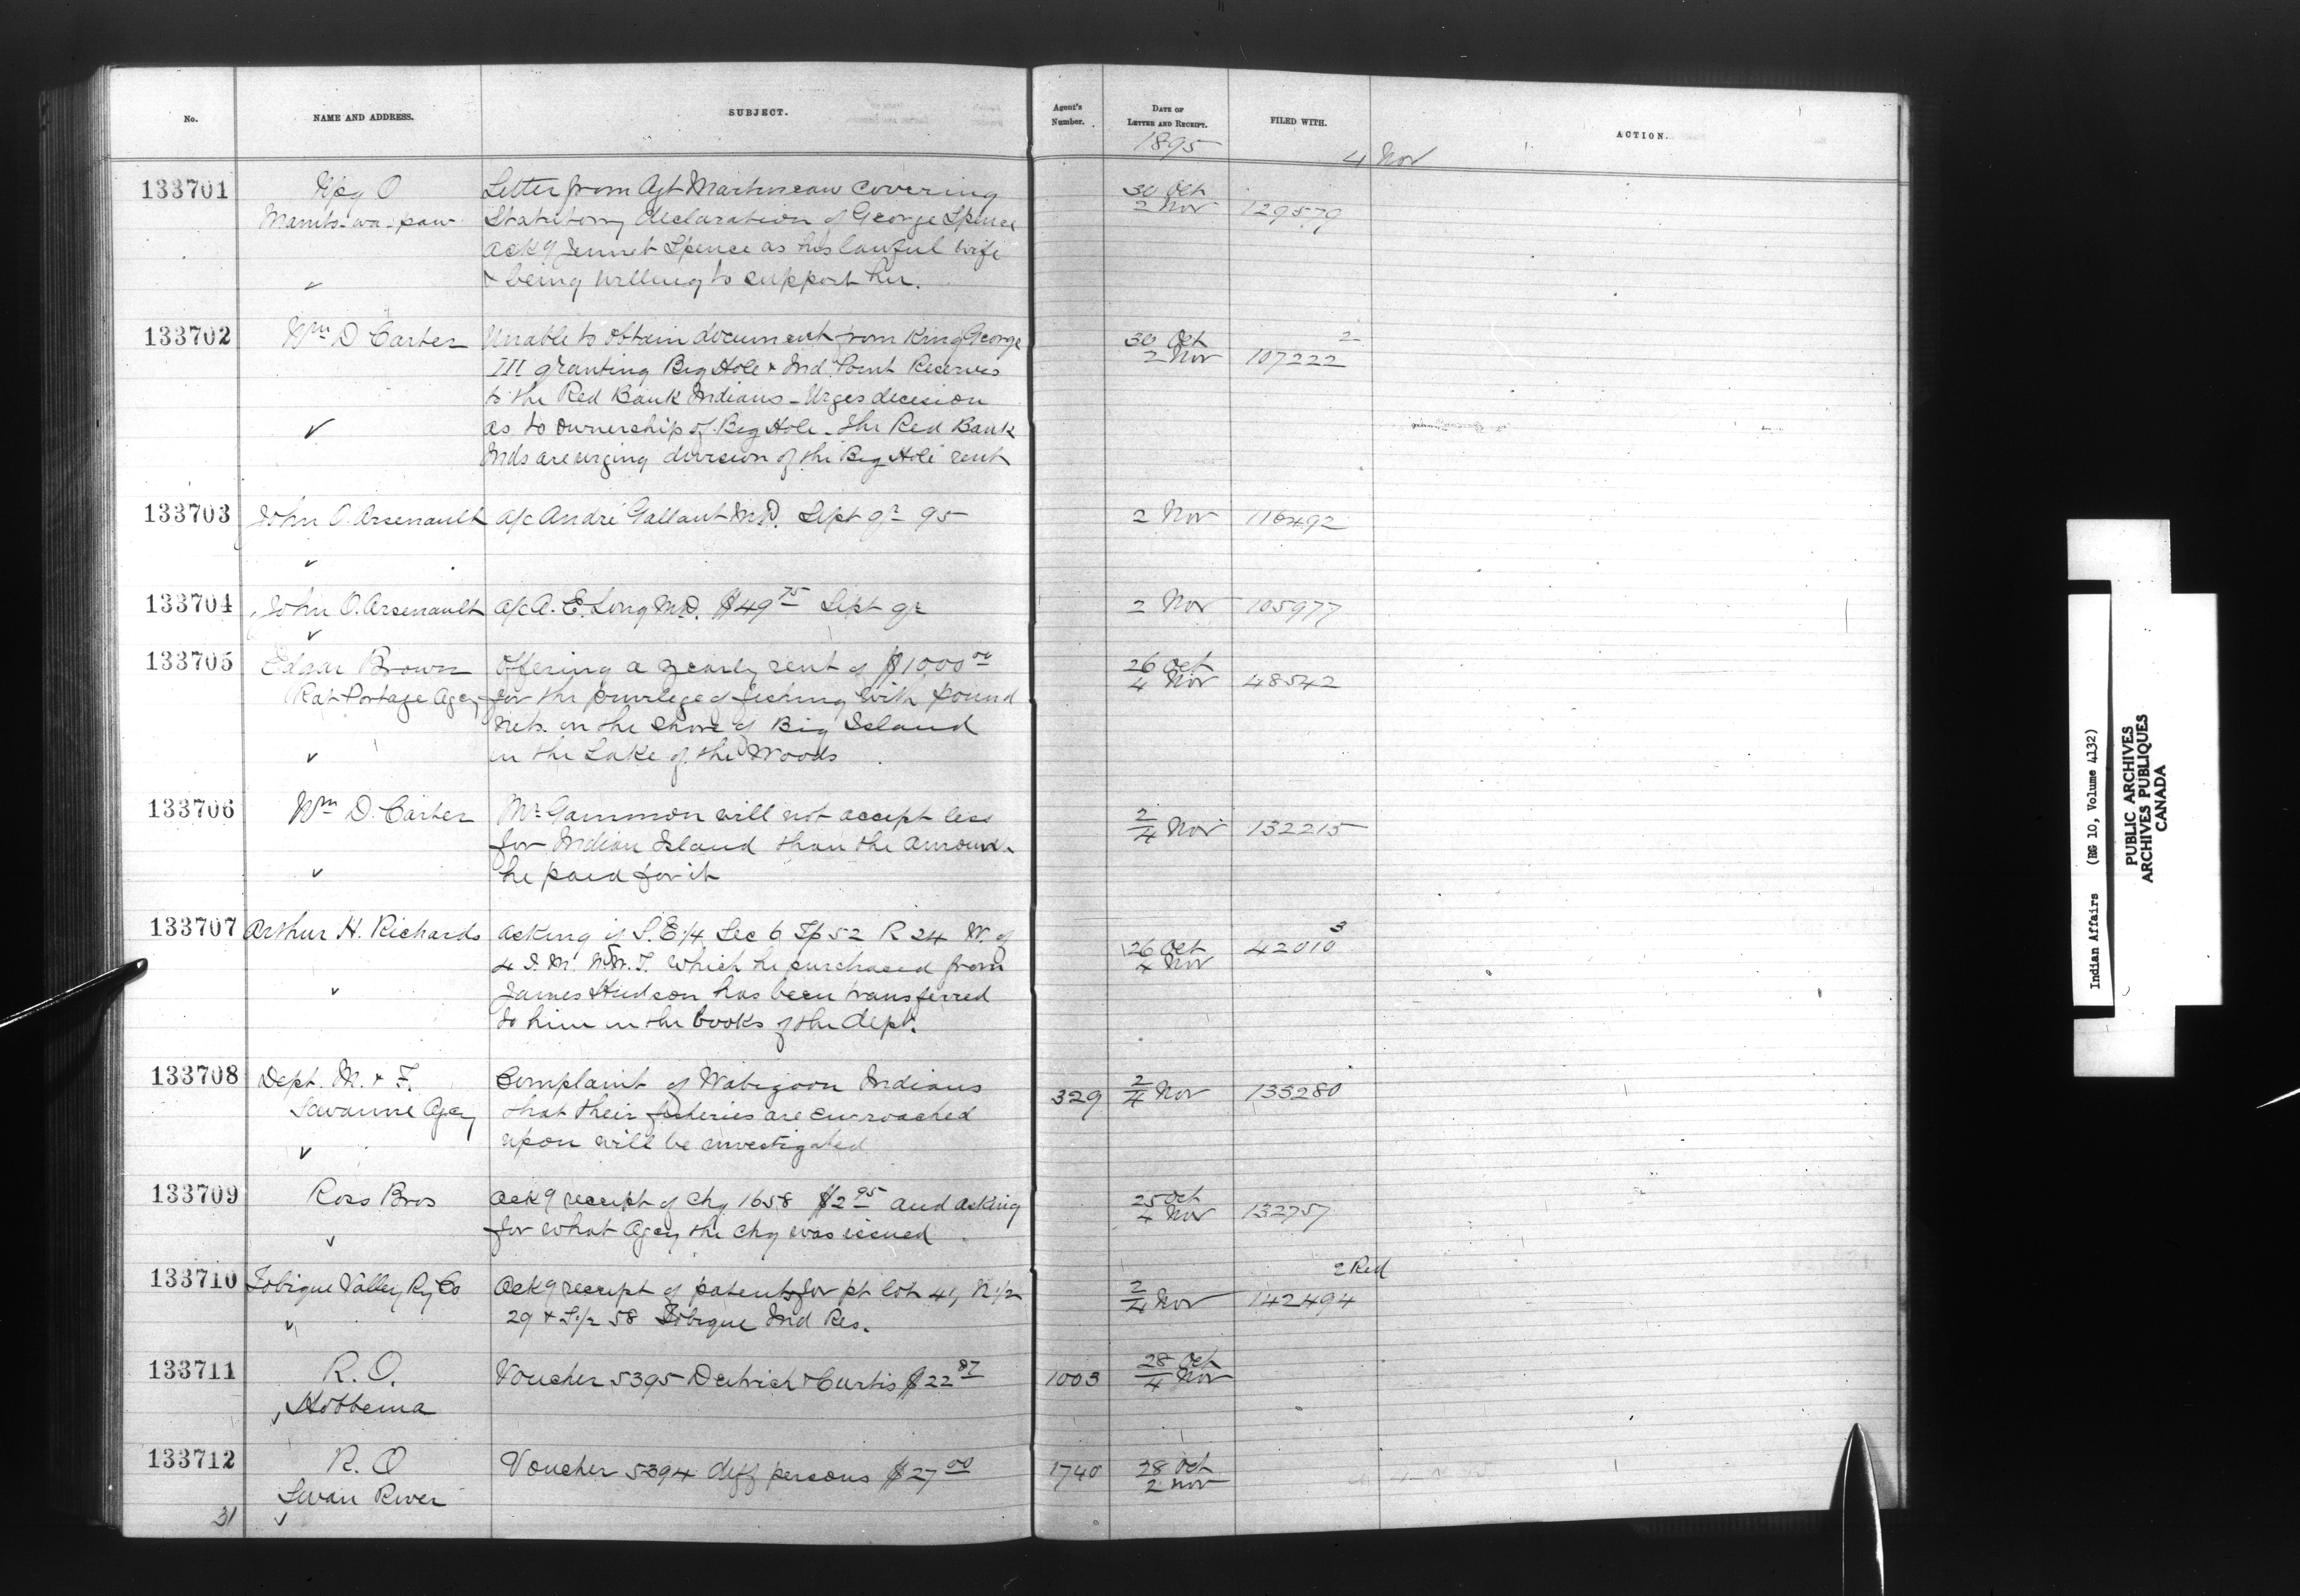 No. NAME AND ADDRESS. SUBJECT. Agent's Number. DATE OF LETTER AND RECEIPT. FILED WITH. ACTION.
1895
4 Nov
133701 Wpg O Letter from Agt Martineau covering 30 Oct
Manito-wa-paw Statutory declaration of George Spence 2 Nov 129579
ackg Jennet Spence as his lawful wife
& being willing to support her.
133702 Wm D Carter Unable to obtain document from King George 30 Oct 2
III granting Big Hole & Ind. Point Reserves 2 Nov 107222
to the Red Bank Indians - Urges decision
as to ownership of Big Hole. The Red Bank
Inds are urging division of the Big Hole rent
133703 John O. Arsenault a/c André Gallant M.D. Sept qr 95 2 Nov 116492
133704 John O. Arsenault a/c A. E. Long M.D. $49 75 Sept qr 2 Nov 105977
133705 Edgar Brown Offering a yearly rent of $1000 00 26 Oct
Rat Portage Agcy for the privilege of fishing with pound 4 Nov 48542
nets in the shore of Big Island
in the Lake of the Woods
133706 Wm D. Carter Mr Gammon will not accept less 2/4 Nov 132215
for Indian Island than the amount
he paid for it
133707 Arthur H. Richards asking if S.E 1/4 Sec 6 Tp 52 R 24 W. of 26 Oct 42010 3
4 I. M. N.W.T. which he purchased from 4 Nov
James Hudson has been transferred
to him in the books of the Dept.
133708 Dept. M. & F. Complaint of Wabigoon Indians 329 2/4 Nov 135280
Savanne Agcy that their fisheries are encroached
upon will be investigated
133709 Ross Bros ackg receipt of chq 1658 $2 95 and asking 25 Oct
for what Agcy the chq was issued 4 Nov 132757
133710 Tobique Valley Ry Co ackg receipt of patents for pt lot 41, N 1/2 2/4 Nov 142494 2 Red
29 & S. 1/2 58 Tobique Ind Res.
133711 R. O. Voucher 5395 Deitrich & Curtis $22 87 1003 28 Oct
Hobbema 4 Nov
133712 R. O Voucher 5394 diff persons $27 00 1740 28 Oct
Swan River 2 Nov
31
Indian Affairs (RG 10, Volume 4132)
PUBLIC ARCHIVES
ARCHIVES PUBLIQUES
CANADA